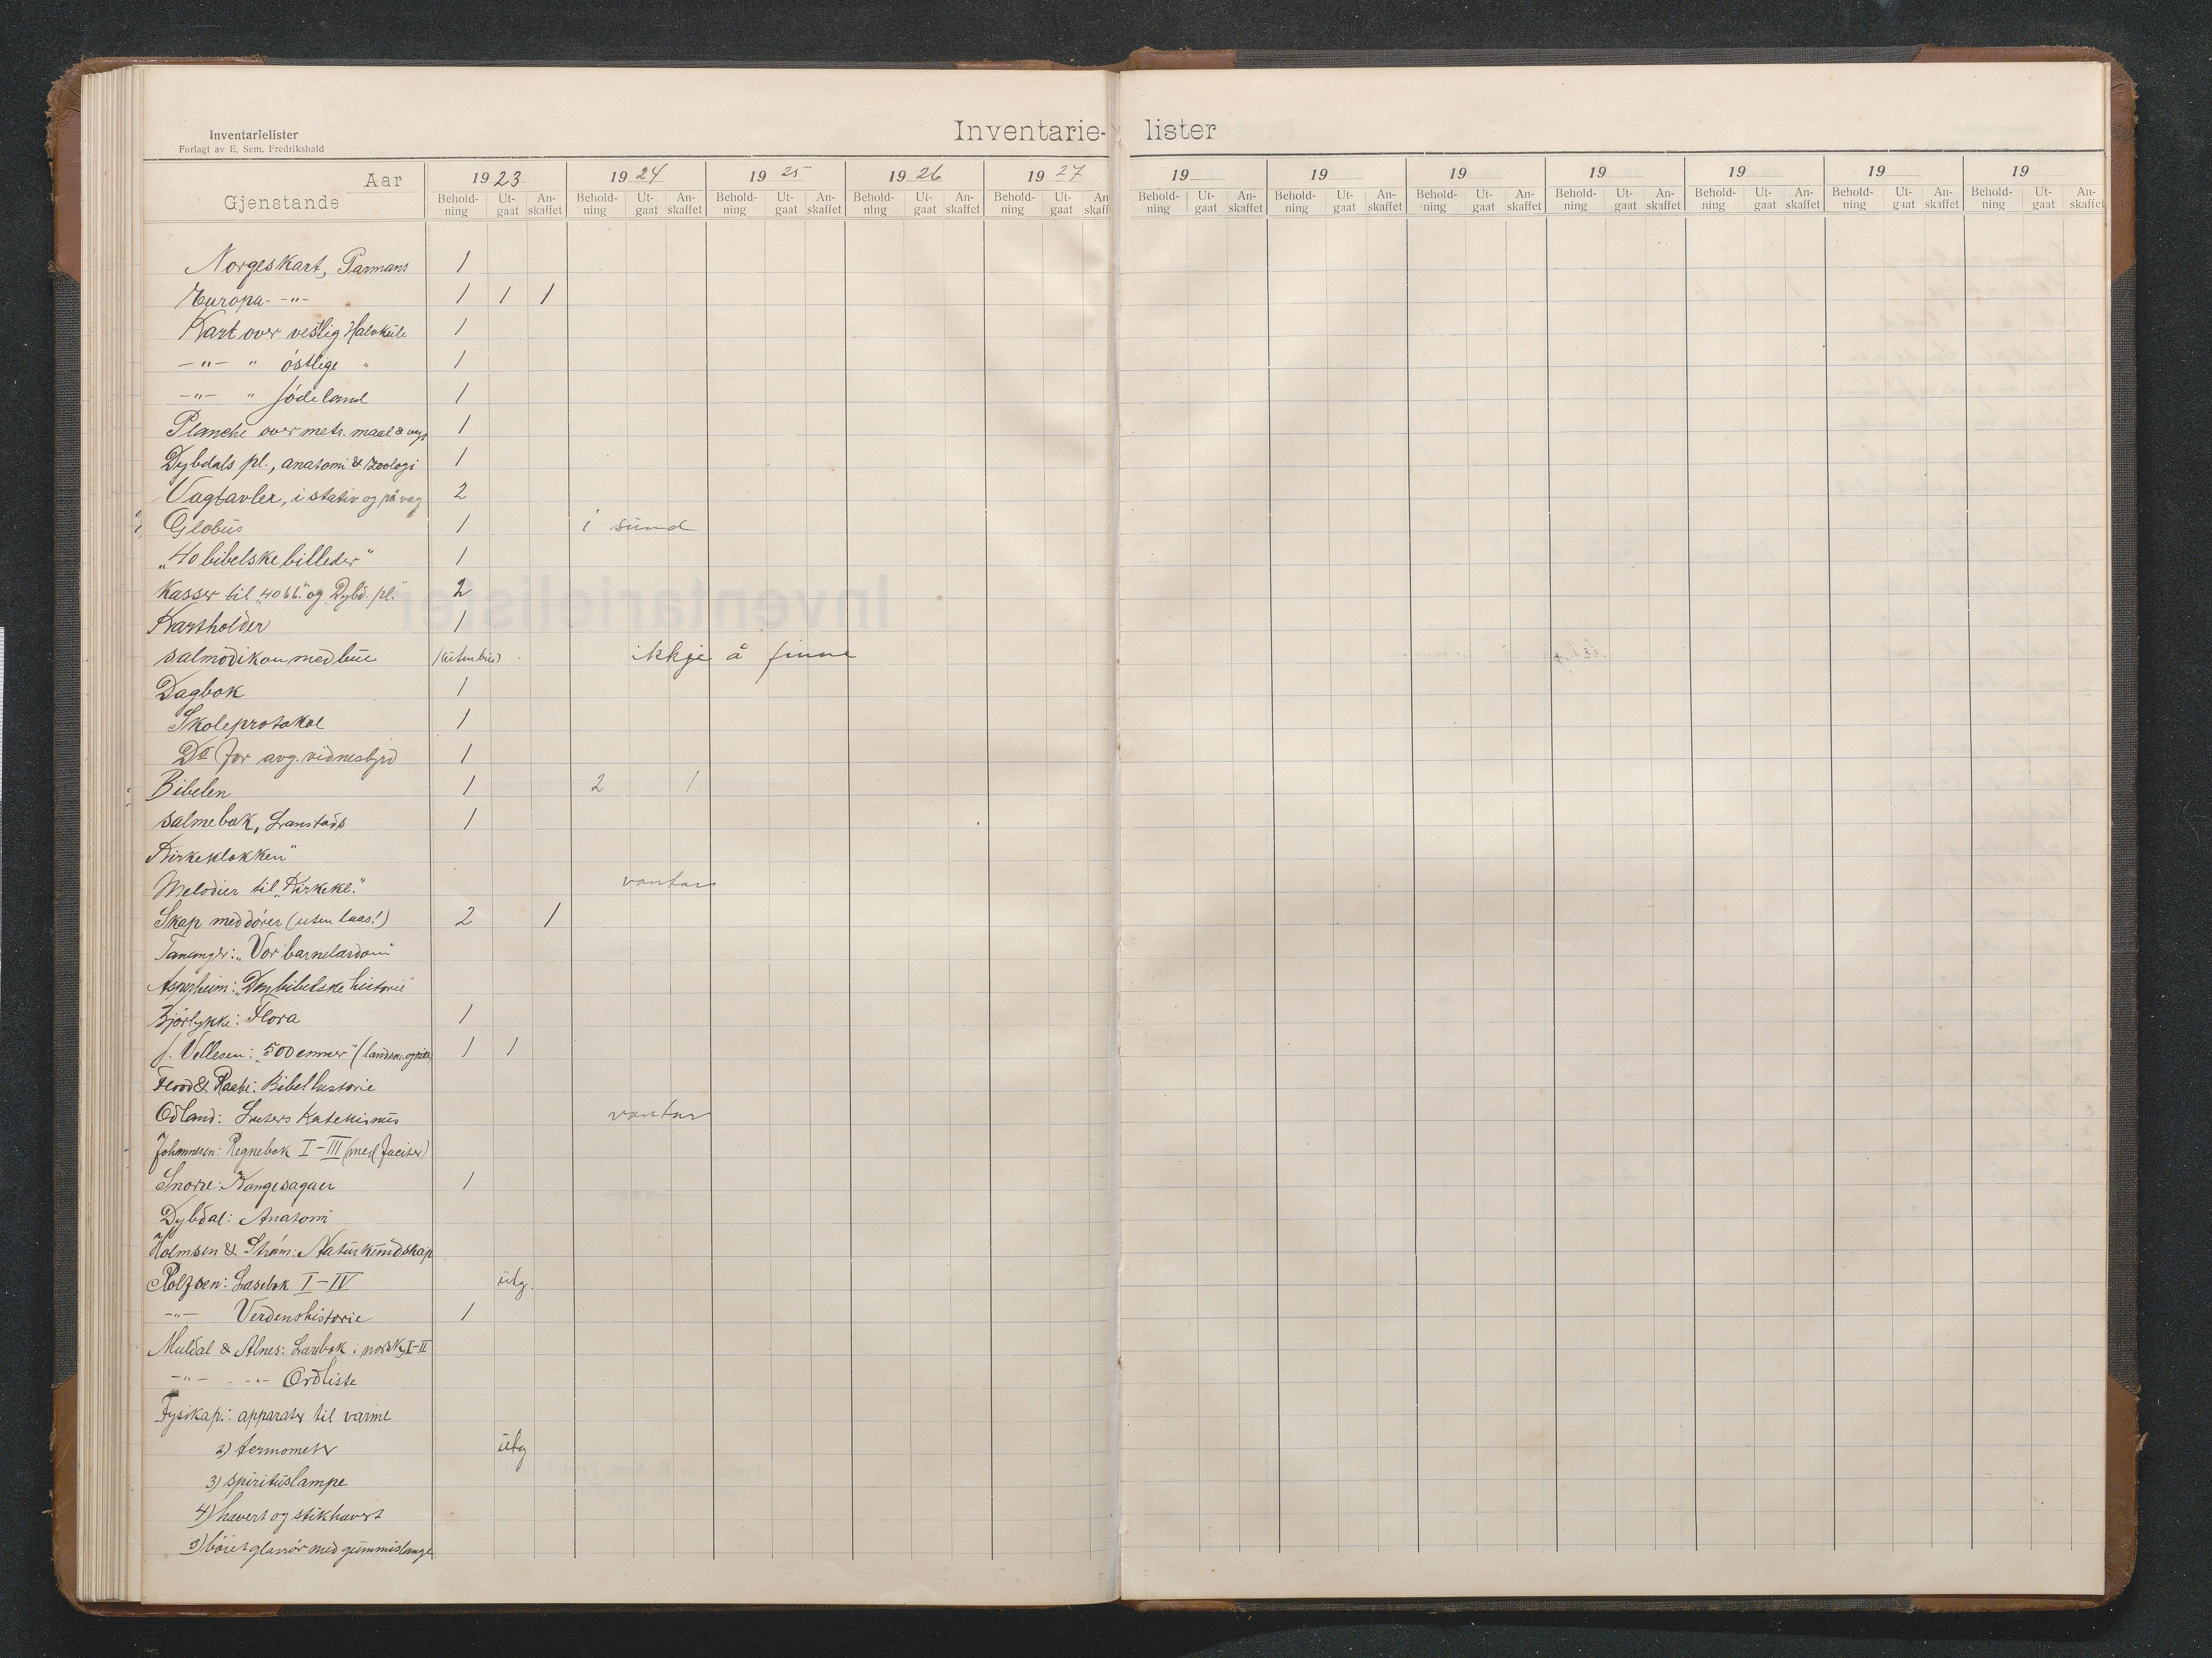 Inventarielister
Forlagt av E. Sem, Fredrikshald
Inventarie- lister
Aar 1923 1924 1925 1926 1927 19 19 19 19 19 19 19
Gjenstande Behold-ning Ut-gaat An-skaffet Behold-ning Ut-gaat An-skaffet Behold-ning Ut-gaat An-skaffet Behold-ning Ut-gaat An-skaffet Behold-ning Ut-gaat An-skaff Behold-ning Ut-gaat An-skaffet Behold-ning Ut-gaat An-skaffet Behold-ning Ut-gaat An-skaffet Behold-ning Ut-gaat An-skaffet Behold-ning Ut-gaat An-skaffet Behold-ning Ut-gaat An-skaffet Behold-ning Ut-gaat An-skaffet
Norgeskart, Parmans 1
Europa- -"- 1 1 1
Kart over vestlig Halvkule 1
-"- " östlige " 1
-"- " Jödeland 1
Planche over metr. maal & vegt 1
Dybdals pl., anatomi & zoologi 1
Vægtavler, i stativ og på væg 2
Globus 1 i sund
"40 bibelske billeder" 1
Kasser til "40 bb." og Dybd. pl. 2
Kartholder 1
Salmodikon med bue 1 (uten bue) ikkje å finne
Dagbok 1
Skoleprotokol 1
Do for avg. vidnesbyrd 1
Bibelen 1 2 1
Salmebok, Lanstads 1
Kirkeklokken"
Melodier til "Kirkekl." vantar
Skap med dörer (uten laas!) 2 1
Tananger: "Vor barnelærdom"
Asperheim: "Den bibelske historie"
Bjorlykke: Flora 1
J. Vellesen: "500 emner" 1 1
Flood & Raabe: Bibelhistorie
Odland: Luters Katekismus vantar
Johannesen: Regnebok I-III (med faciter)
Snorre: Kongesagaer 1
Dybdal: Anatomi
Holmsen & Ström: Naturkundskap
Rolfsen: Læsebok I-IV utg.
-"- Verdenshistorie 1
Muldal & Alnes: Lærebok i norsk, I-II
-"- -"- Ordliste
Fysikap.: apparater til varme
2) termometer utg
3) spirituslampe
4) hævert og stikhævert
5) böiet glasrör med gummislange